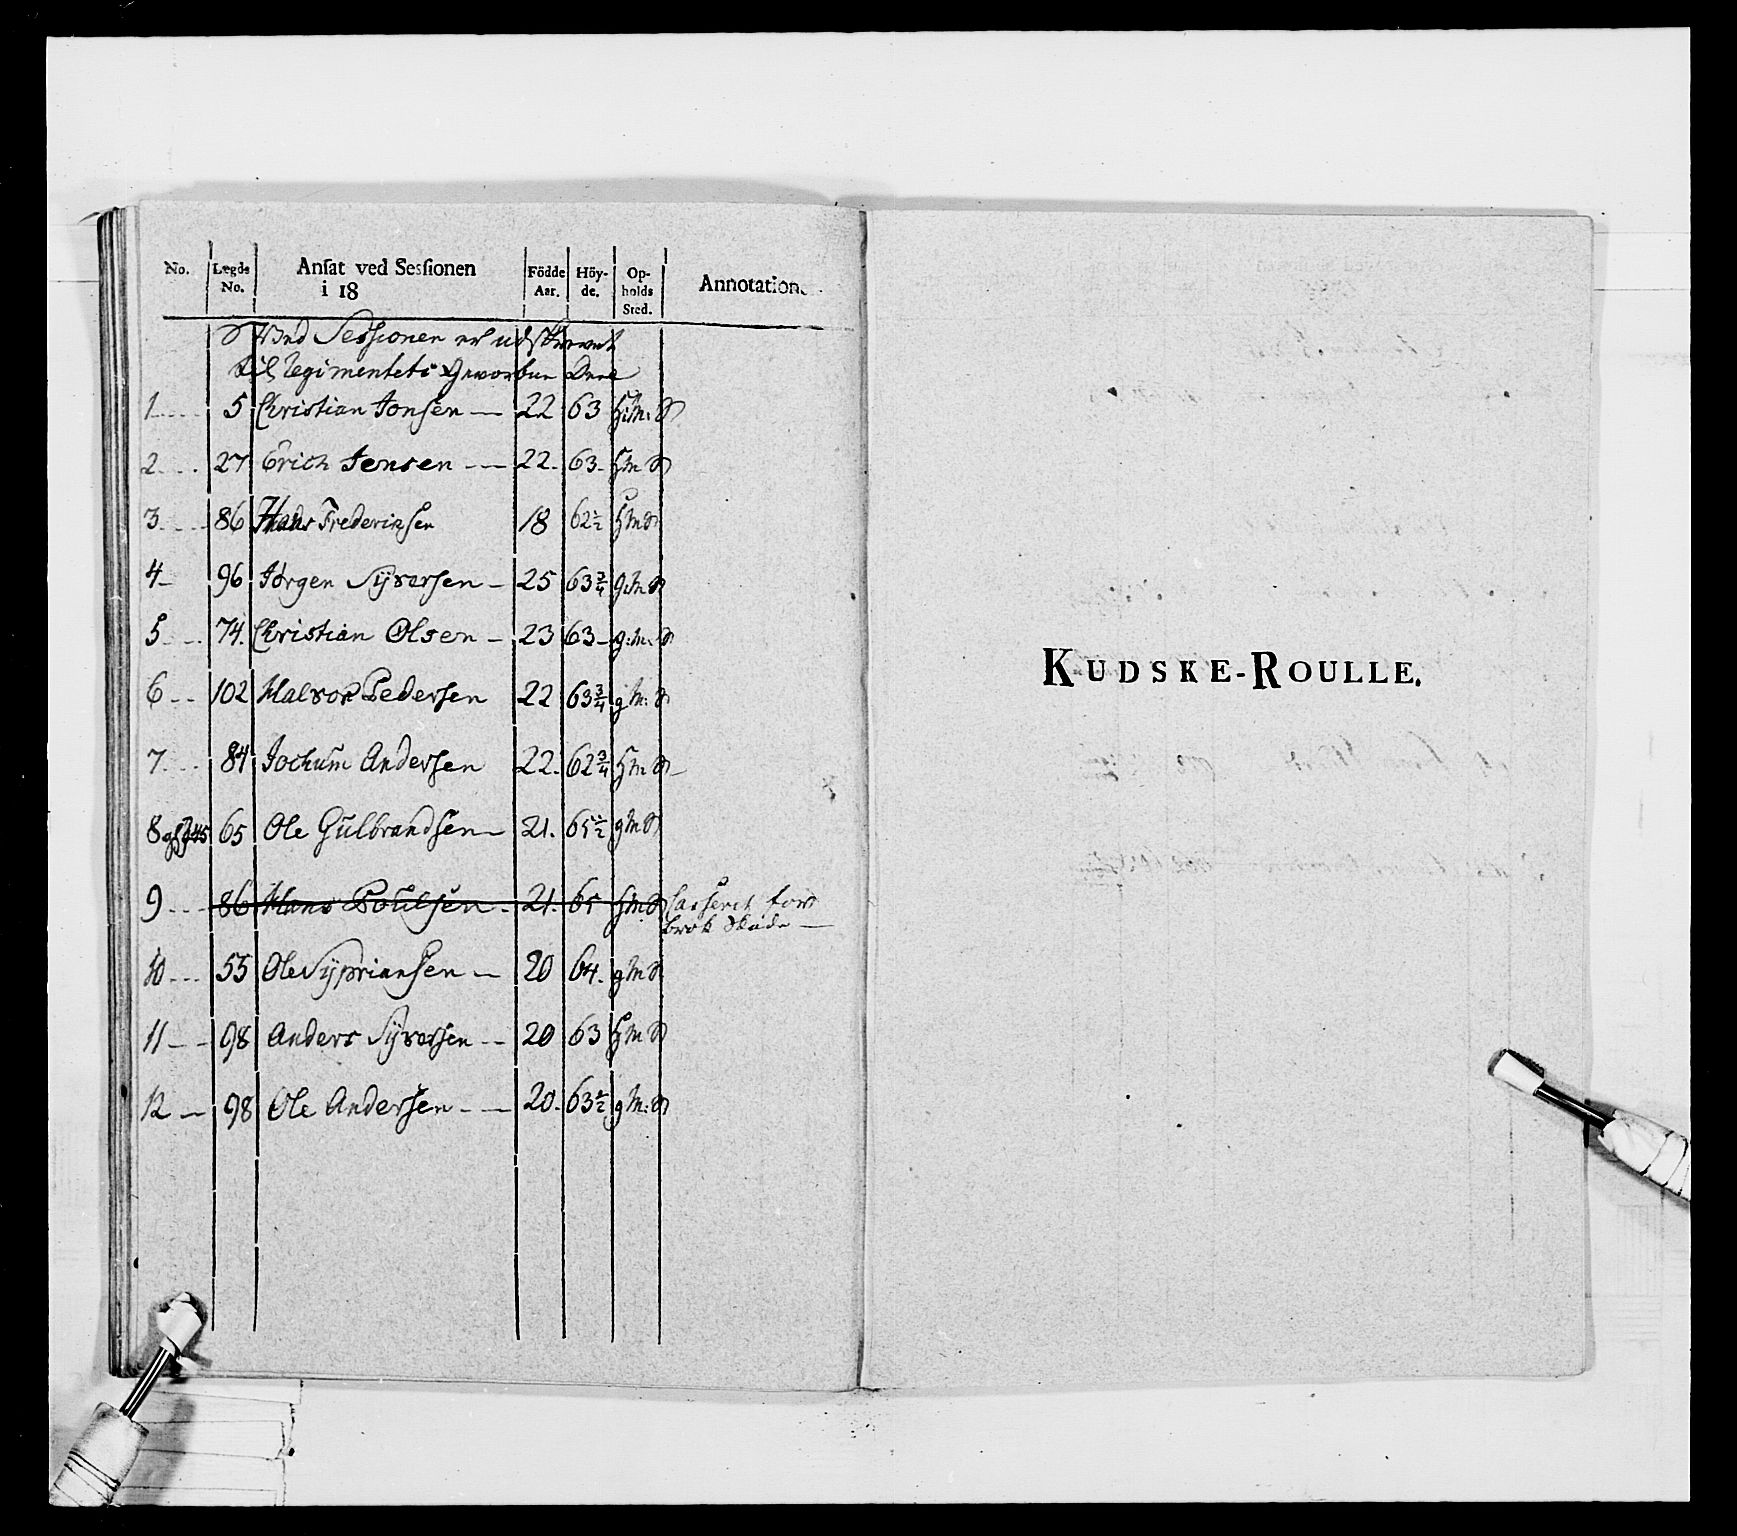 No. Lægds No. Ansat ved Sessionen i 18 Födde Aar. Höyde. Opholds Sted. Annotation.
Ved Sessionen er udskrevet
til Regimentets Gevorbne Deel
1 5 Christian Jonsen 22 63
2 27 Erich Jensen 22 63
3 86 Hans Frederiksen 18 62½
4 96 Jörgen Syversen 25 63¾
5 74 Christian Olsen 23 63
6 102 Halvor Pedersen 22 63¾
7 84 Jochum Andersen 22 62¾
8 65 Ole Gulbrandsen 21 65½
9 86 Hans Poulsen 21 65 Casseret for
brok Skade
10 55 Ole Sypriansen 20 64
11 98 Anders Syversen 20 63
12 98 Ole Andersen 20 63½
KUDSKE-ROULLE.